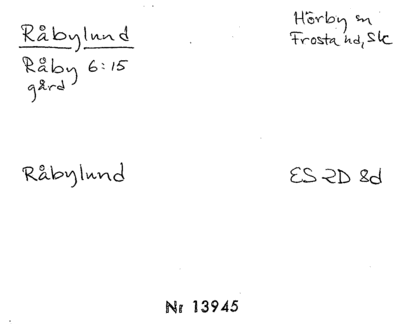 Råbylund
Hörby sn
Frosta hd, Sk
Råby 6:15
gård
Råbylund
ES 2D 8d
Nr 13945